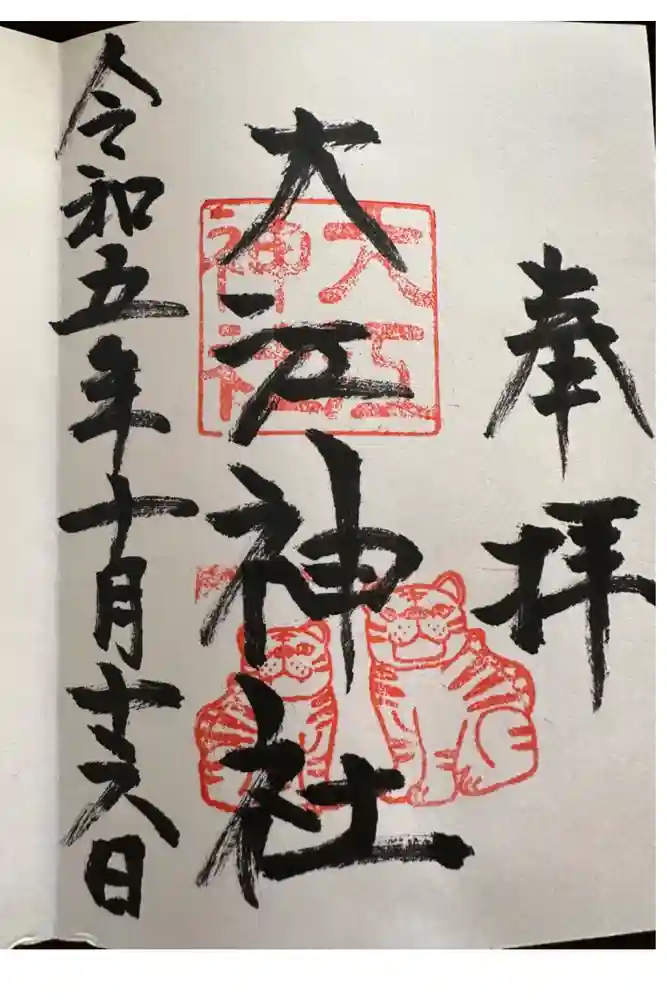 奉拝
大江神社
大江
神社
令和五年十月十六日